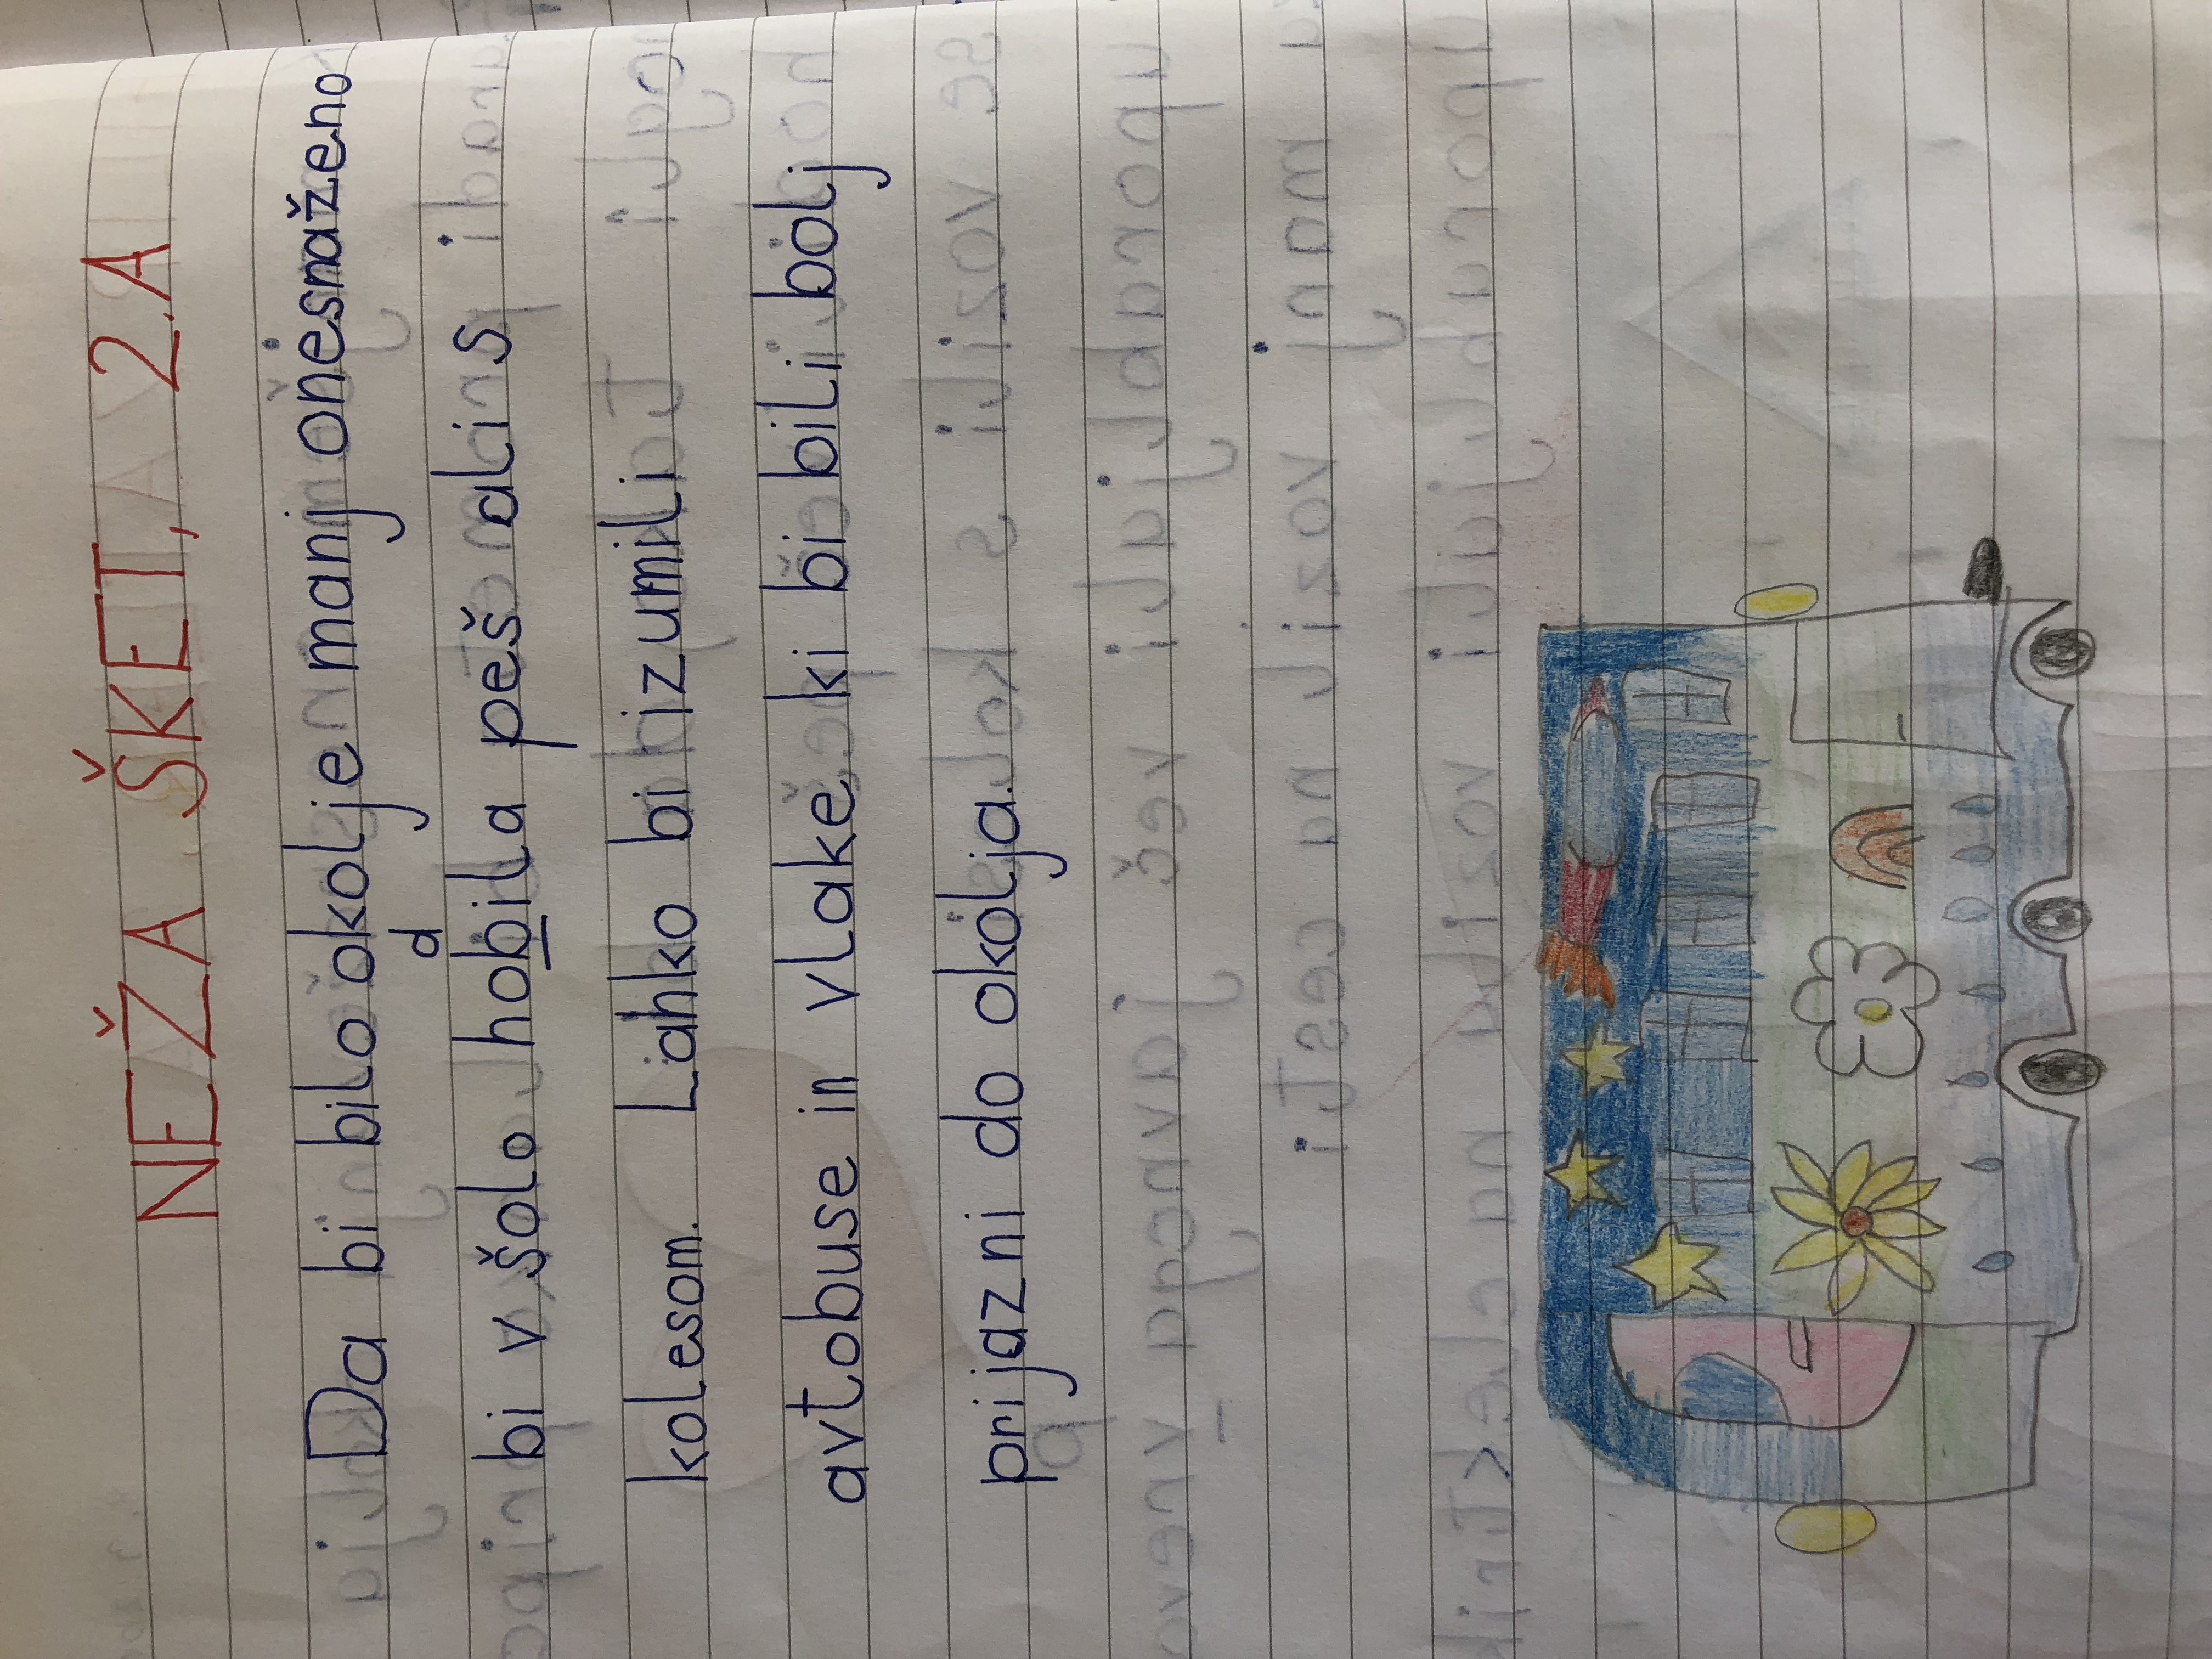 NEŽA ŠKET, 2.A
Da bi bilo okolje manj onesnaženo
d
bi v šolo hobila peš ali s
kolesom. Lahko bi izumili
avtobuse in vlake ki bi bili bolj
prijazni do okolja.